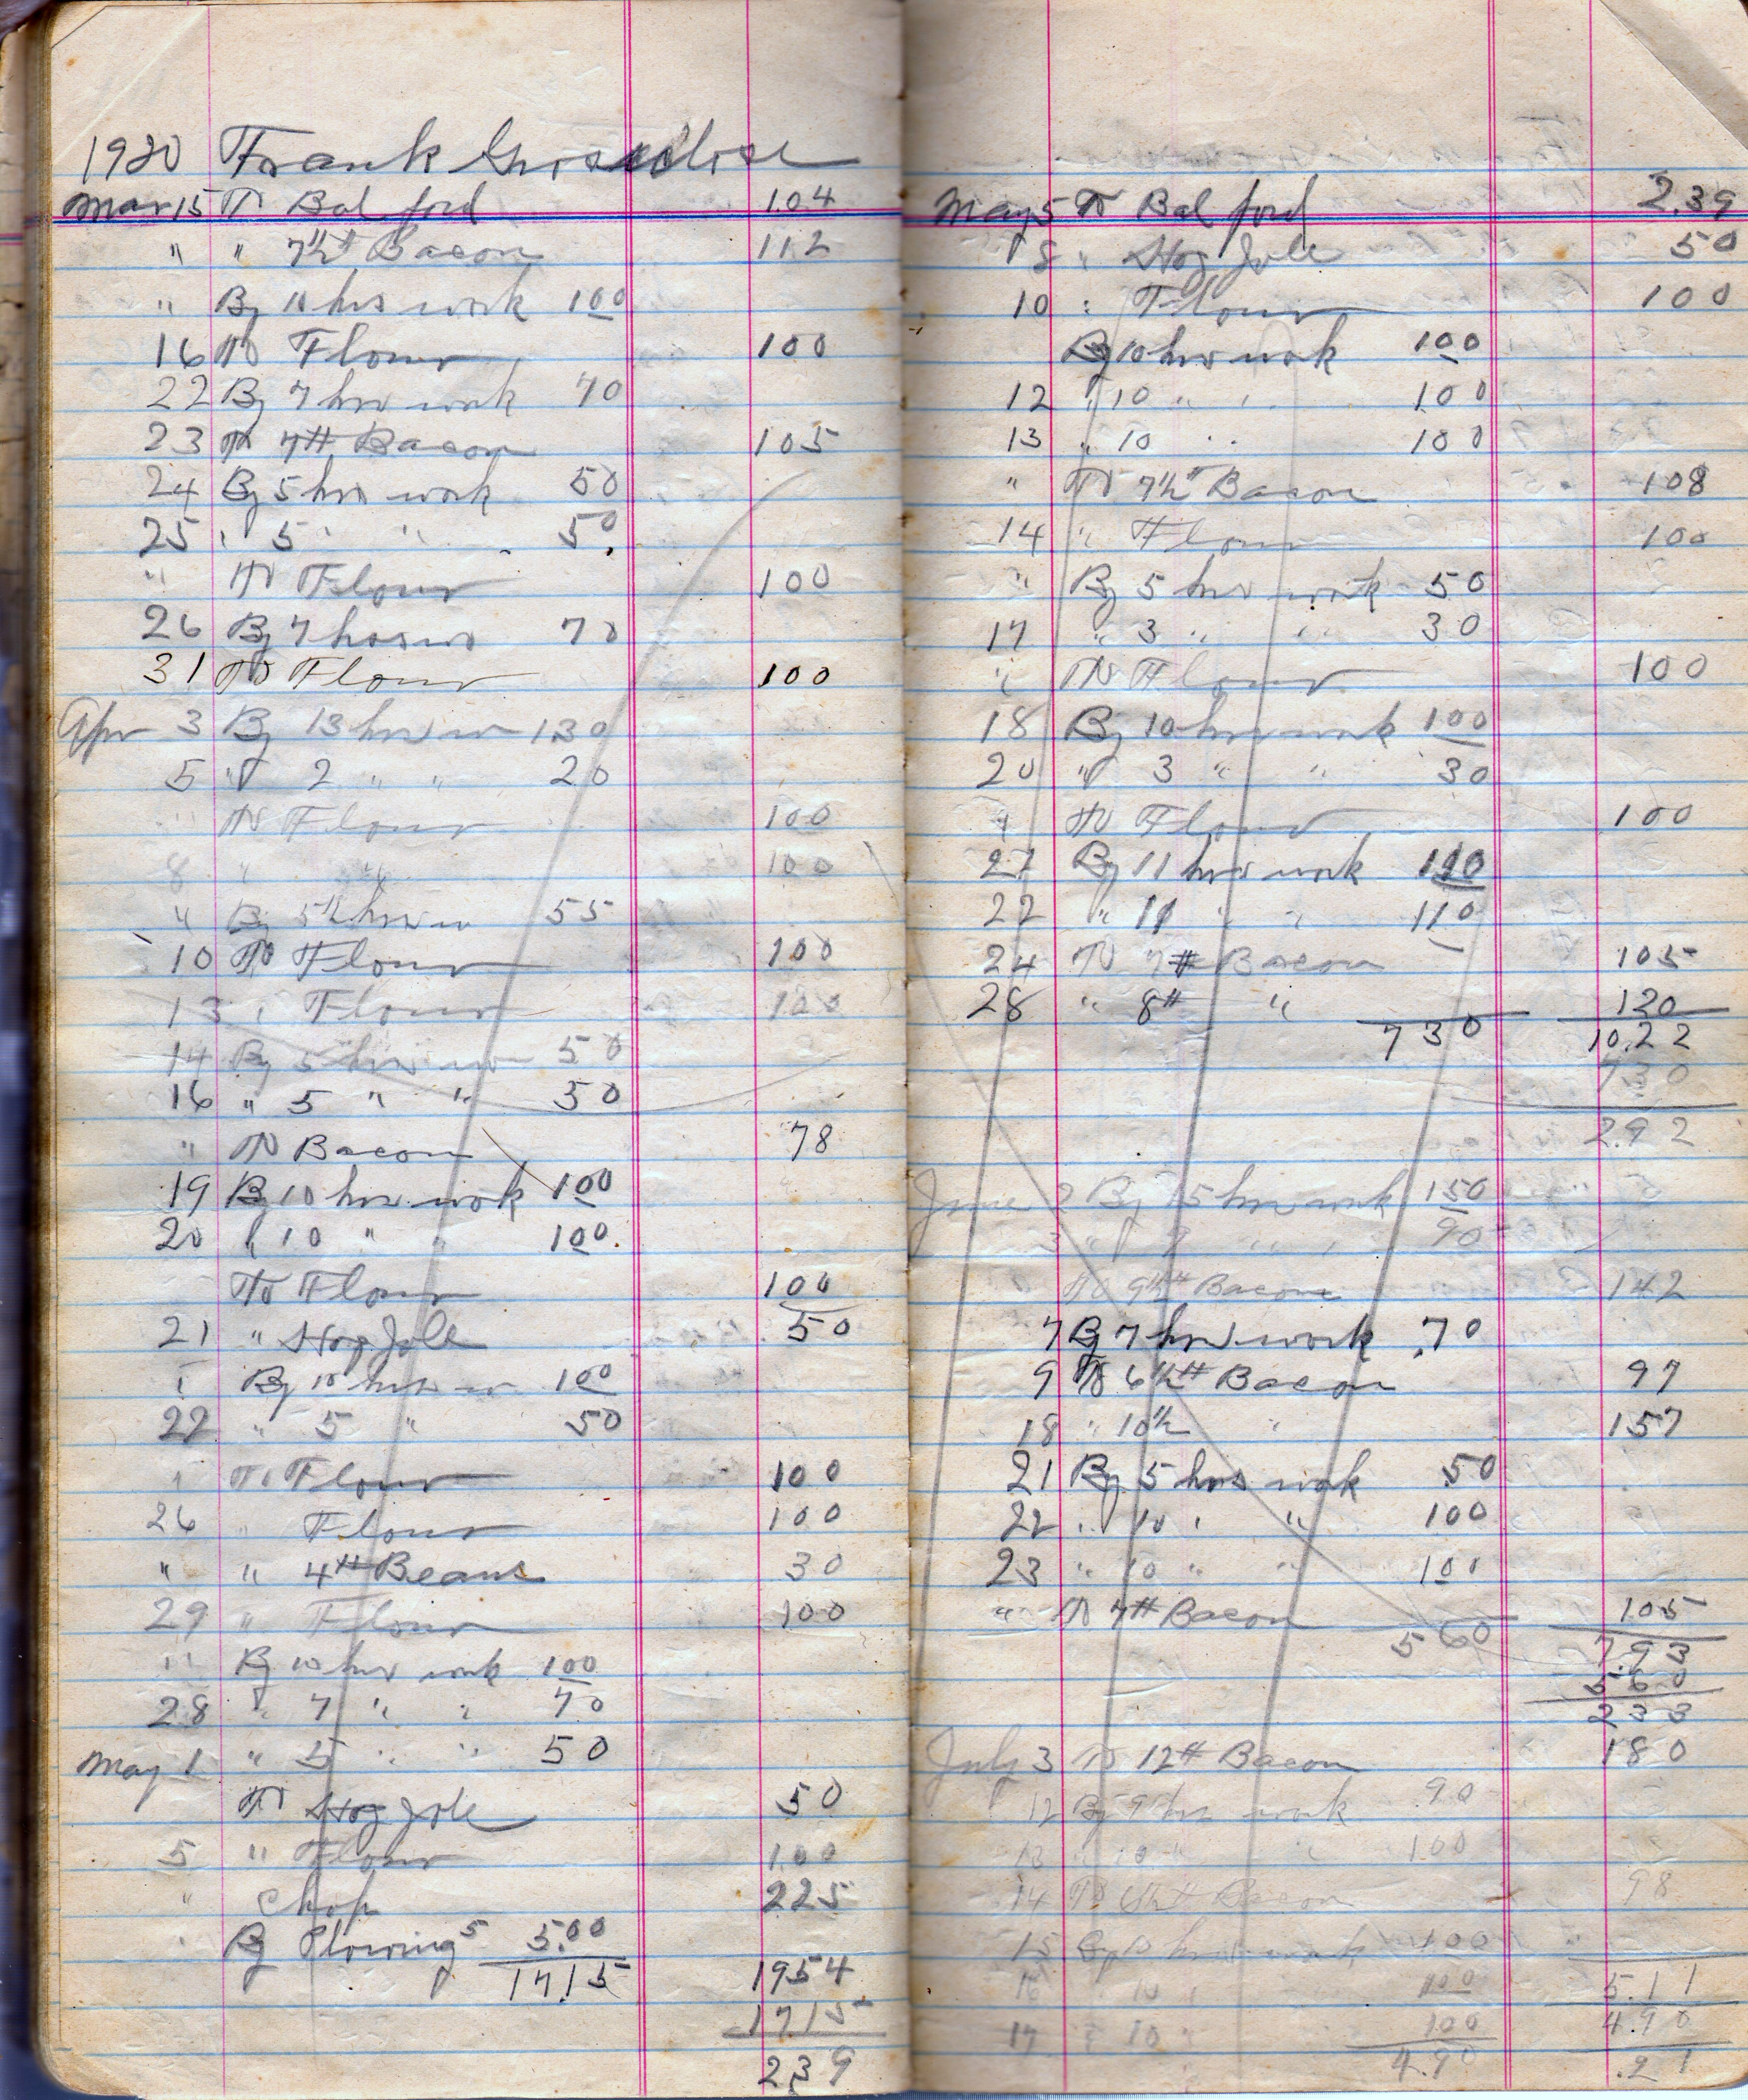 1930 Frank
Mar 15 To Bal ford 1.04
" " 7½# Bacon 112
" By 10 hrs work 100
16 To Flour 100
22 By 7 hrs work 70
23 To 7# Bacon 105
24 By 5 hrs work 50
25 " 5 " " 50
" To Flour 100
26 By 7 hours 70
31 To Flour 100
Apr 3 By 13 hrs w 130
5 " 2 " " 20
" To Flour 100
8 " " 100
" By 5½ hrs w 55
10 To Flour 100
13 " Flour 100
14 By 5 hrs w 50
16 " 5 " " 50
" To Bacon 78
19 By 10 hrs work 100
20 " 10 " " 100
To Flour 100
21 " Hog Jole 50
" By 10 hrs w 100
22 " 5 " 50
" To Flour 100
26 " Flour 100
" " 4# Beans 30
29 " Flour 100
" By 10 hrs work 100
28 " 7 " " 70
May 1 " 5 " " 50
To Hog Jole 50
5 " Flour 100
" Chop 225
By Plowing 5 5.00
17.15 1954
17.15
2.39
May 5 To Bal ford 2.39
8 " Hog Jole 50
10 " Flour 100
By 10 hrs work 100
12 " 10 " " 100
13 " 10 " " 100
" To 7½# Bacon 108
14 " Flour 100
" By 5 hrs work 50
17 " 3 " " 30
" To Flour 100
18 By 10 hrs work 100
20 " 3 " " 30
" To Flour 100
21 By 11 hrs work 110
22 " 11 " " 110
24 To 7# Bacon 105
28 " 8# " 120
730 10.22
730
2.92
June 2 By 15 hrs work 150
3 " 9 " " 90
To 9½# Bacon 142
7 By 7 hrs work .70
9 To 6½# Bacon 97
18 " 10½ " 157
21 By 5 hrs work 50
22 " 10 " " 100
23 " 10 " " 100
" To 7# Bacon 105
560 7.93
5.60
233
July 3 To 12# Bacon 180
12 By 9 hrs work .90
13 " 10 " " 100
14 To 6½# Bacon 98
15 By 10 hrs work 100
16 " 10 " 100 5.11
17 " 10 " 100 4.90
4.90 .21